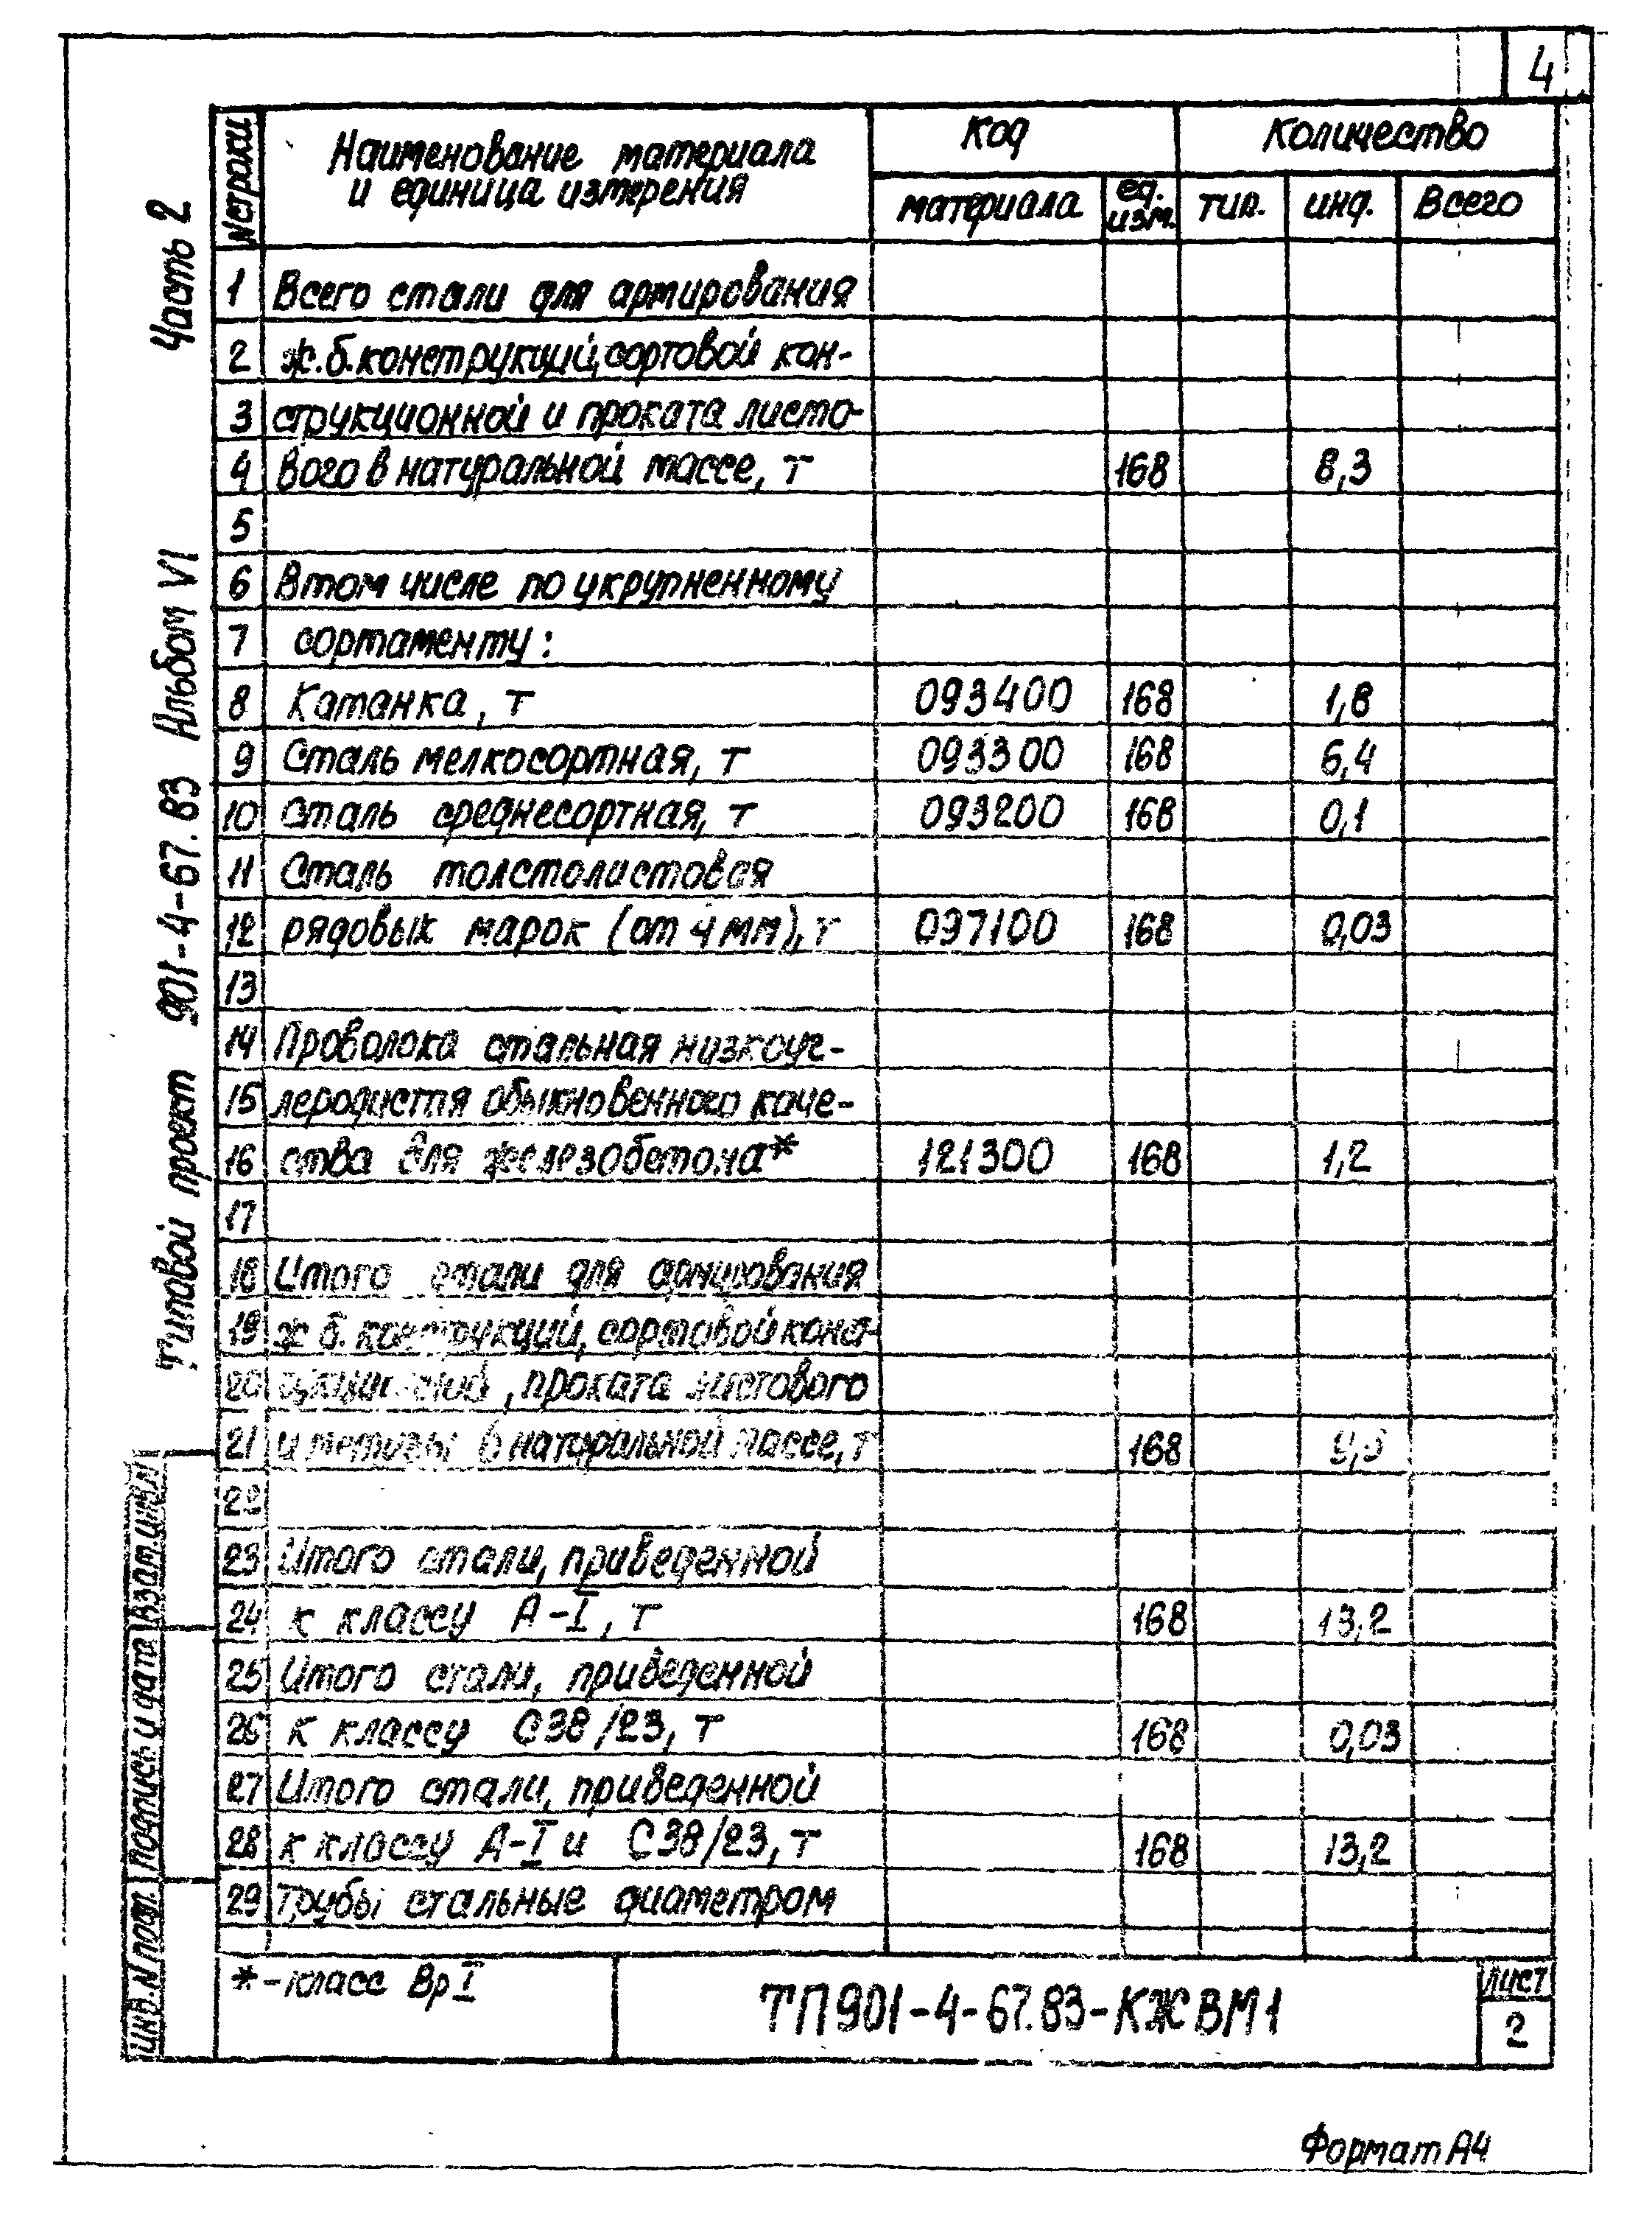 4
Часть 2
Типовой проект 901-4-67.83 Альбом VI
N строки
Наименование материала
и единица измерения
Код
Количество
материала
ед.
изм.
тип.
инд.
Всего
1 Всего стали для армирования
2 ж.б.конструкций, сортовой кон-
3 струкционной и проката листо-
4 вого в натуральной массе, т 168 8,3
5
6 В том числе по укрупненному
7 сортаменту:
8 Катанка, т 093400 168 1,8
9 Сталь мелкосортная, т 093300 168 6,4
10 Сталь среднесортная, т 093200 168 0,1
11 Сталь толстолистовая
12 рядовых марок (от 4 мм), т 097100 168 0,03
13
14 Проволока стальная низкоуг-
15 леродистая обыкновенного каче-
16 ства для железобетона* 121300 168 1,2
17
18 Итого стали для армирования
19 ж.б. конструкций, сортовой конс-
20 , проката листового
21 и метизы в натуральной массе, т 168
22
23 Итого стали, приведенной
24 к классу А-I, т 168 13,2
25 Итого стали, приведенной
26 к классу С38/23, т 168 0,03
27 Итого стали, приведенной
28 к классу А-I и С38/23, т 168 13,2
29 Трубы стальные диаметром
*-класс ВрI
ТП901-4-67.83-КЖ ВМ1
Лист
2
Инв.N подл.
Подпись и дата
Взам.инв.N
Формат А4